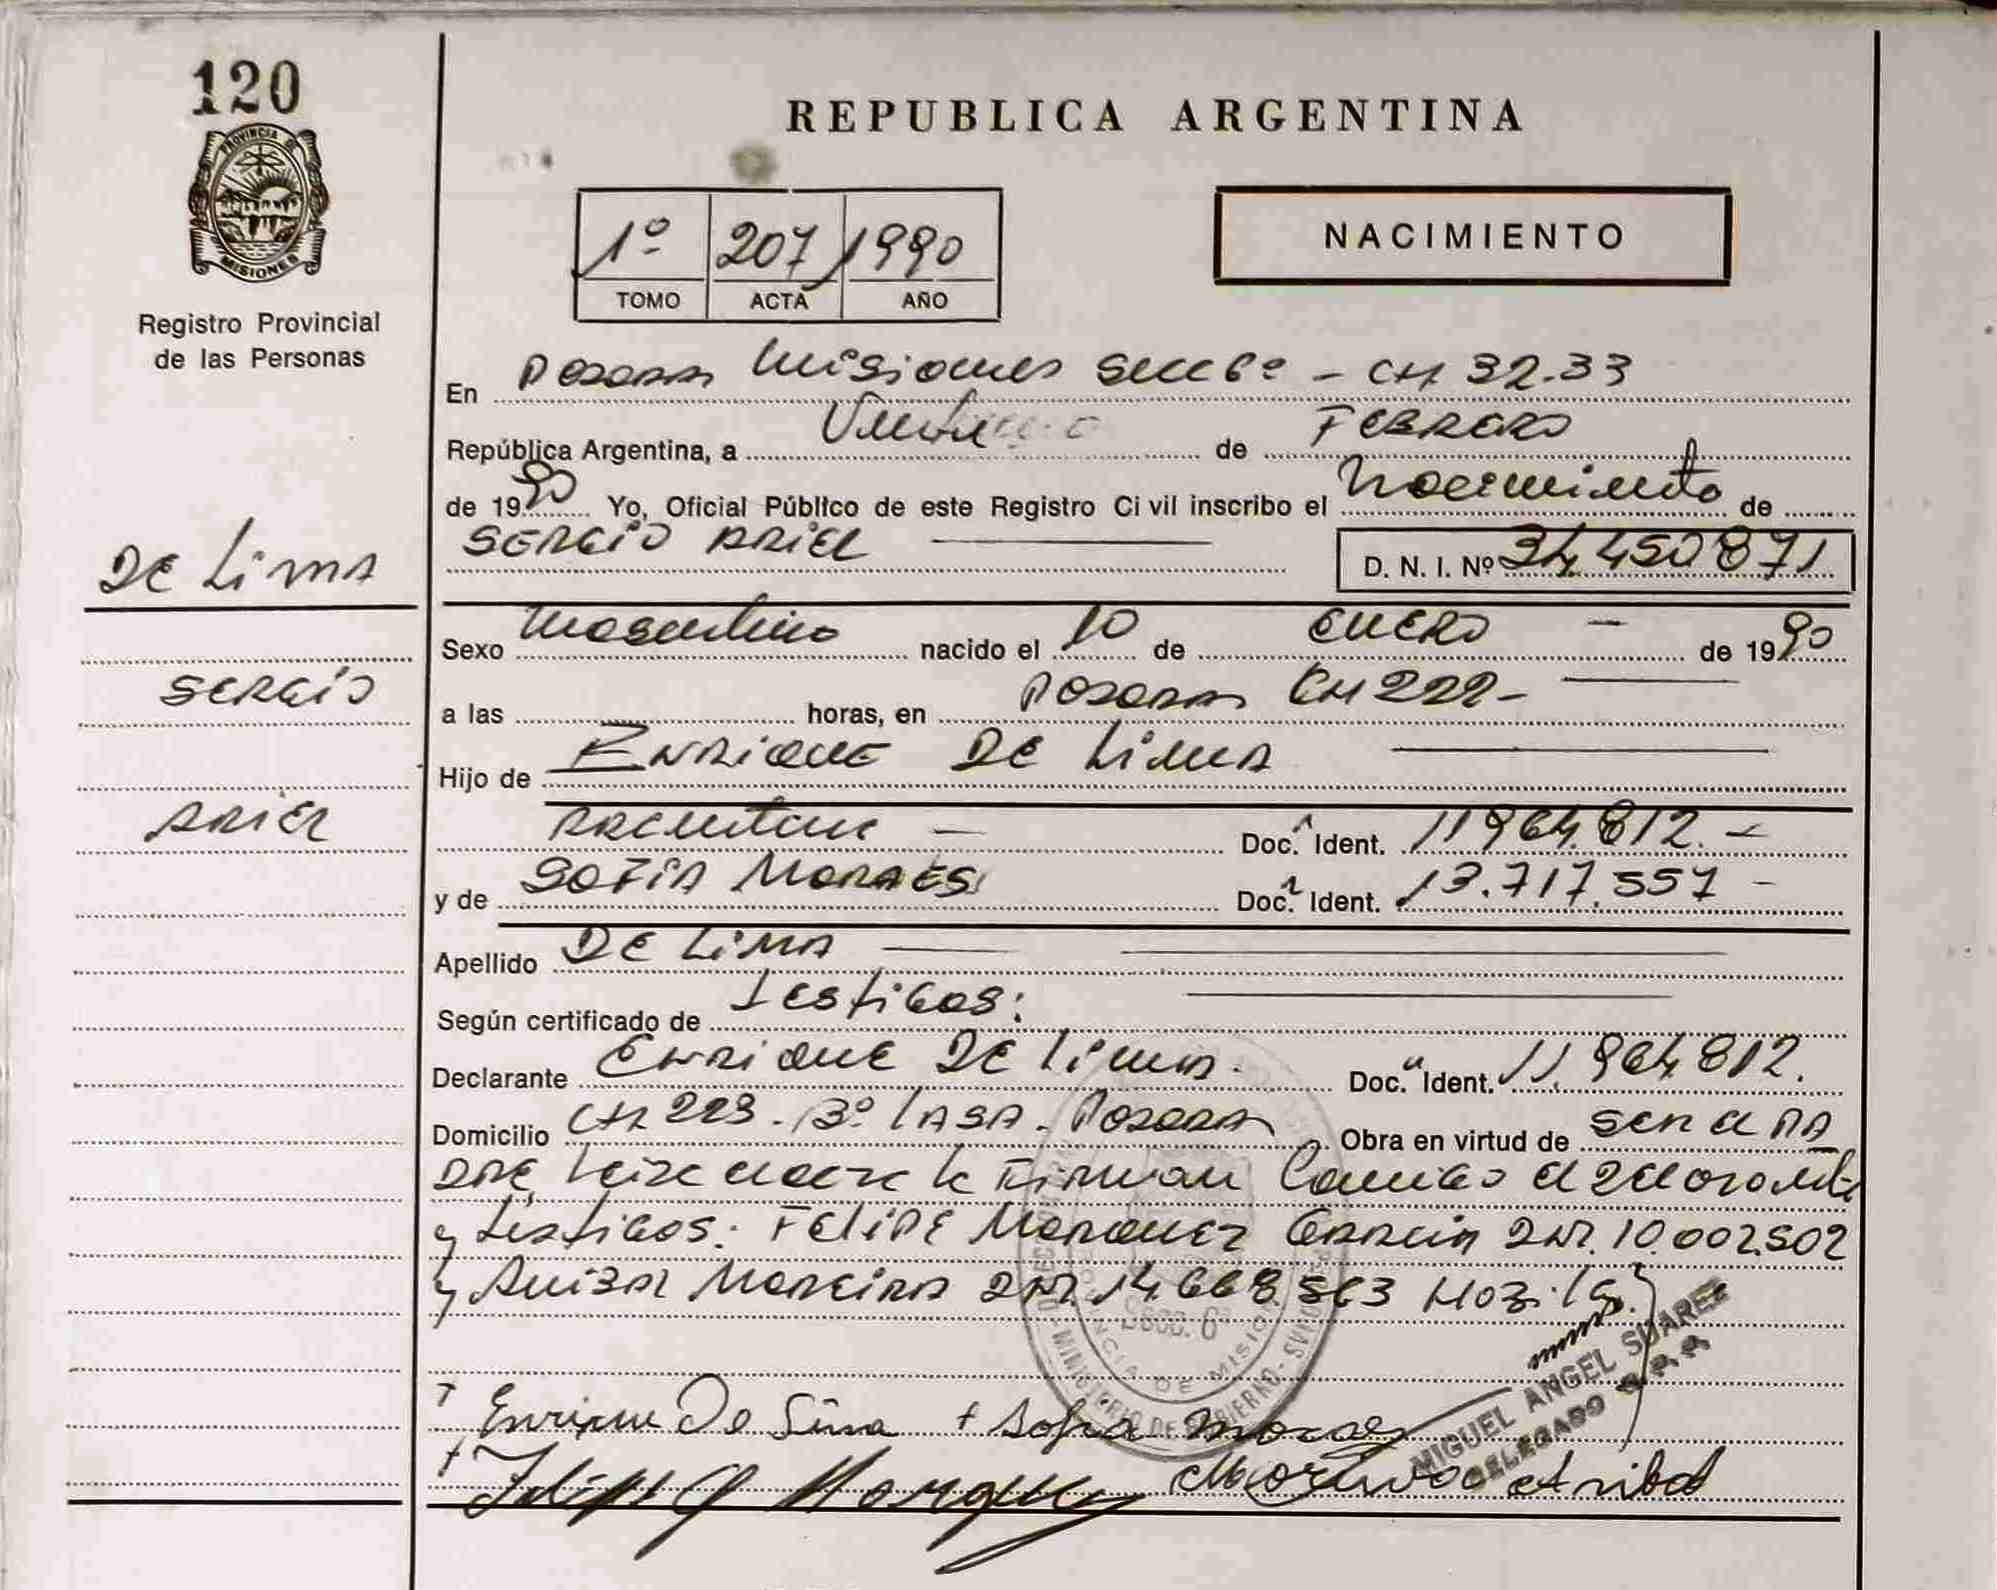 120
PROVINCIA D
MISIONES
Registro Provincial
de las Personas
REPUBLICA ARGENTINA
1º 207 1990
TOMO ACTA AÑO
NACIMIENTO
En Posadas Misiones Secc 6º - CH 32.33
República Argentina, a de FEBRERO
de 1990 Yo, Oficial Público de este Registro Civil inscribo el Nacimiento de
SERGIO ARIEL D. N. I. Nº 34.450871
DE LIMA
SERGIO
ARIEL
Sexo Masculino nacido el 10 de ENERO - de 1990
a las horas, en Posadas CH 222-
Hijo de ENRIQUE DE LIMA
Doc. Ident. 11964.812.-
y de SOFIA MORAES Doc. Ident. 13.717.557 -
Apellido DE LIMA
Según certificado de Testigos:
Declarante ENRIQUE DE LIMA. Doc. Ident. 11.964812.
Domicilio CH 223. 3º CASA. Posadas Obra en virtud de SER EL PA
DRE, Firman Conmigo el
y Testigos: FELIPE MARQUEZ 10.002.502
y ANIBAL MOREIRA 14.668.563
SECC. 6ª
MINISTERIO DE GOBIERNO
MIGUEL ANGEL SUAREZ
DELEGADO R.P.P.
Enrique De Lima + Sofia Moraes
Felipe Marquez Anibal